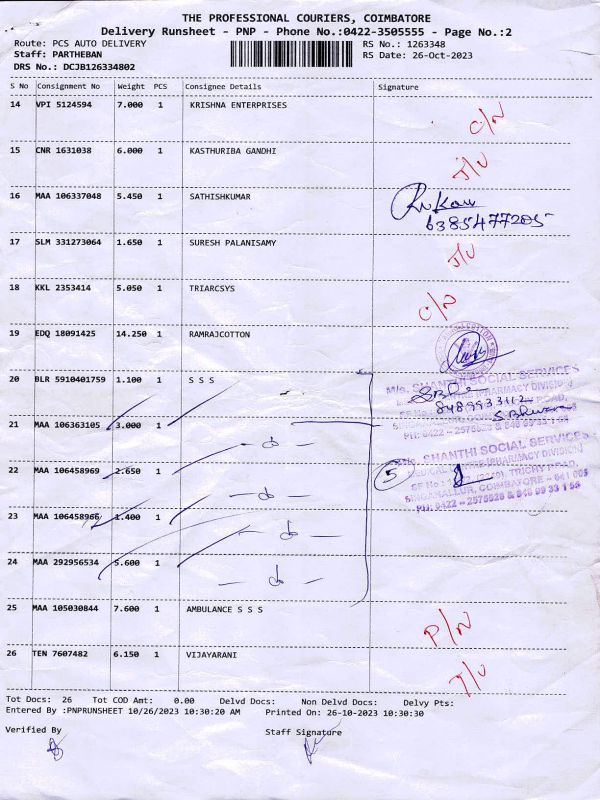 THE PROFESSIONAL COURIERS, COIMBATORE
Delivery Runsheet - PNP - Phone No.:0422-3505555 - Page No.:2
Route: PCS AUTO DELIVERY RS No.: 1263348
Staff: PARTHEBAN RS Date: 26-Oct-2023
DRS No.: DCJB126334802
S No Consignment No Weight PCS Consignee Details Signature
14 VPI 5124594 7.000 1 KRISHNA ENTERPRISES
C/N
15 CNR 1631038 6.000 1 KASTHURIBA GANDHI
J/U
16 MAA 106337048 5.450 1 SATHISHKUMAR
6385477205
17 SLM 331273064 1.650 1 SURESH PALANISAMY
J/U
18 KKL 2353414 5.050 1 TRIARCSYS
C/N
19 EDQ 18091425 14.250 1 RAMRAJCOTTON
20 BLR 5910401759 1.100 1 S S S
M/s. SHANTHI SOCIAL SERVICES
PHARMACY DIVISION
8489933112
21 MAA 106363105 3.000 1
PH: 0422 - 2575528 & 848 99 33 1 55
M/s. SHANTHI SOCIAL SERVICES
MEDICAL PHARMACY DIVISION
22 MAA 106458969 2.650 1
5
TRICHY ROAD,
SINGANALLUR, COIMBATORE - 641 005
PH: 0422 - 2575528 & 848 99 33 1 55
23 MAA 106458966 1.400 1
24 MAA 292956534 5.600 1
25 MAA 105030844 7.600 1 AMBULANCE S S S
P/N
26 TEN 7607482 6.150 1 VIJAYARANI
J/U
Tot Docs: 26 Tot COD Amt: 0.00 Delvd Docs: Non Delvd Docs: Delvy Pts:
Entered By :PNPRUNSHEET 10/26/2023 10:30:20 AM Printed On: 26-10-2023 10:30:30
Verified By Staff Signature